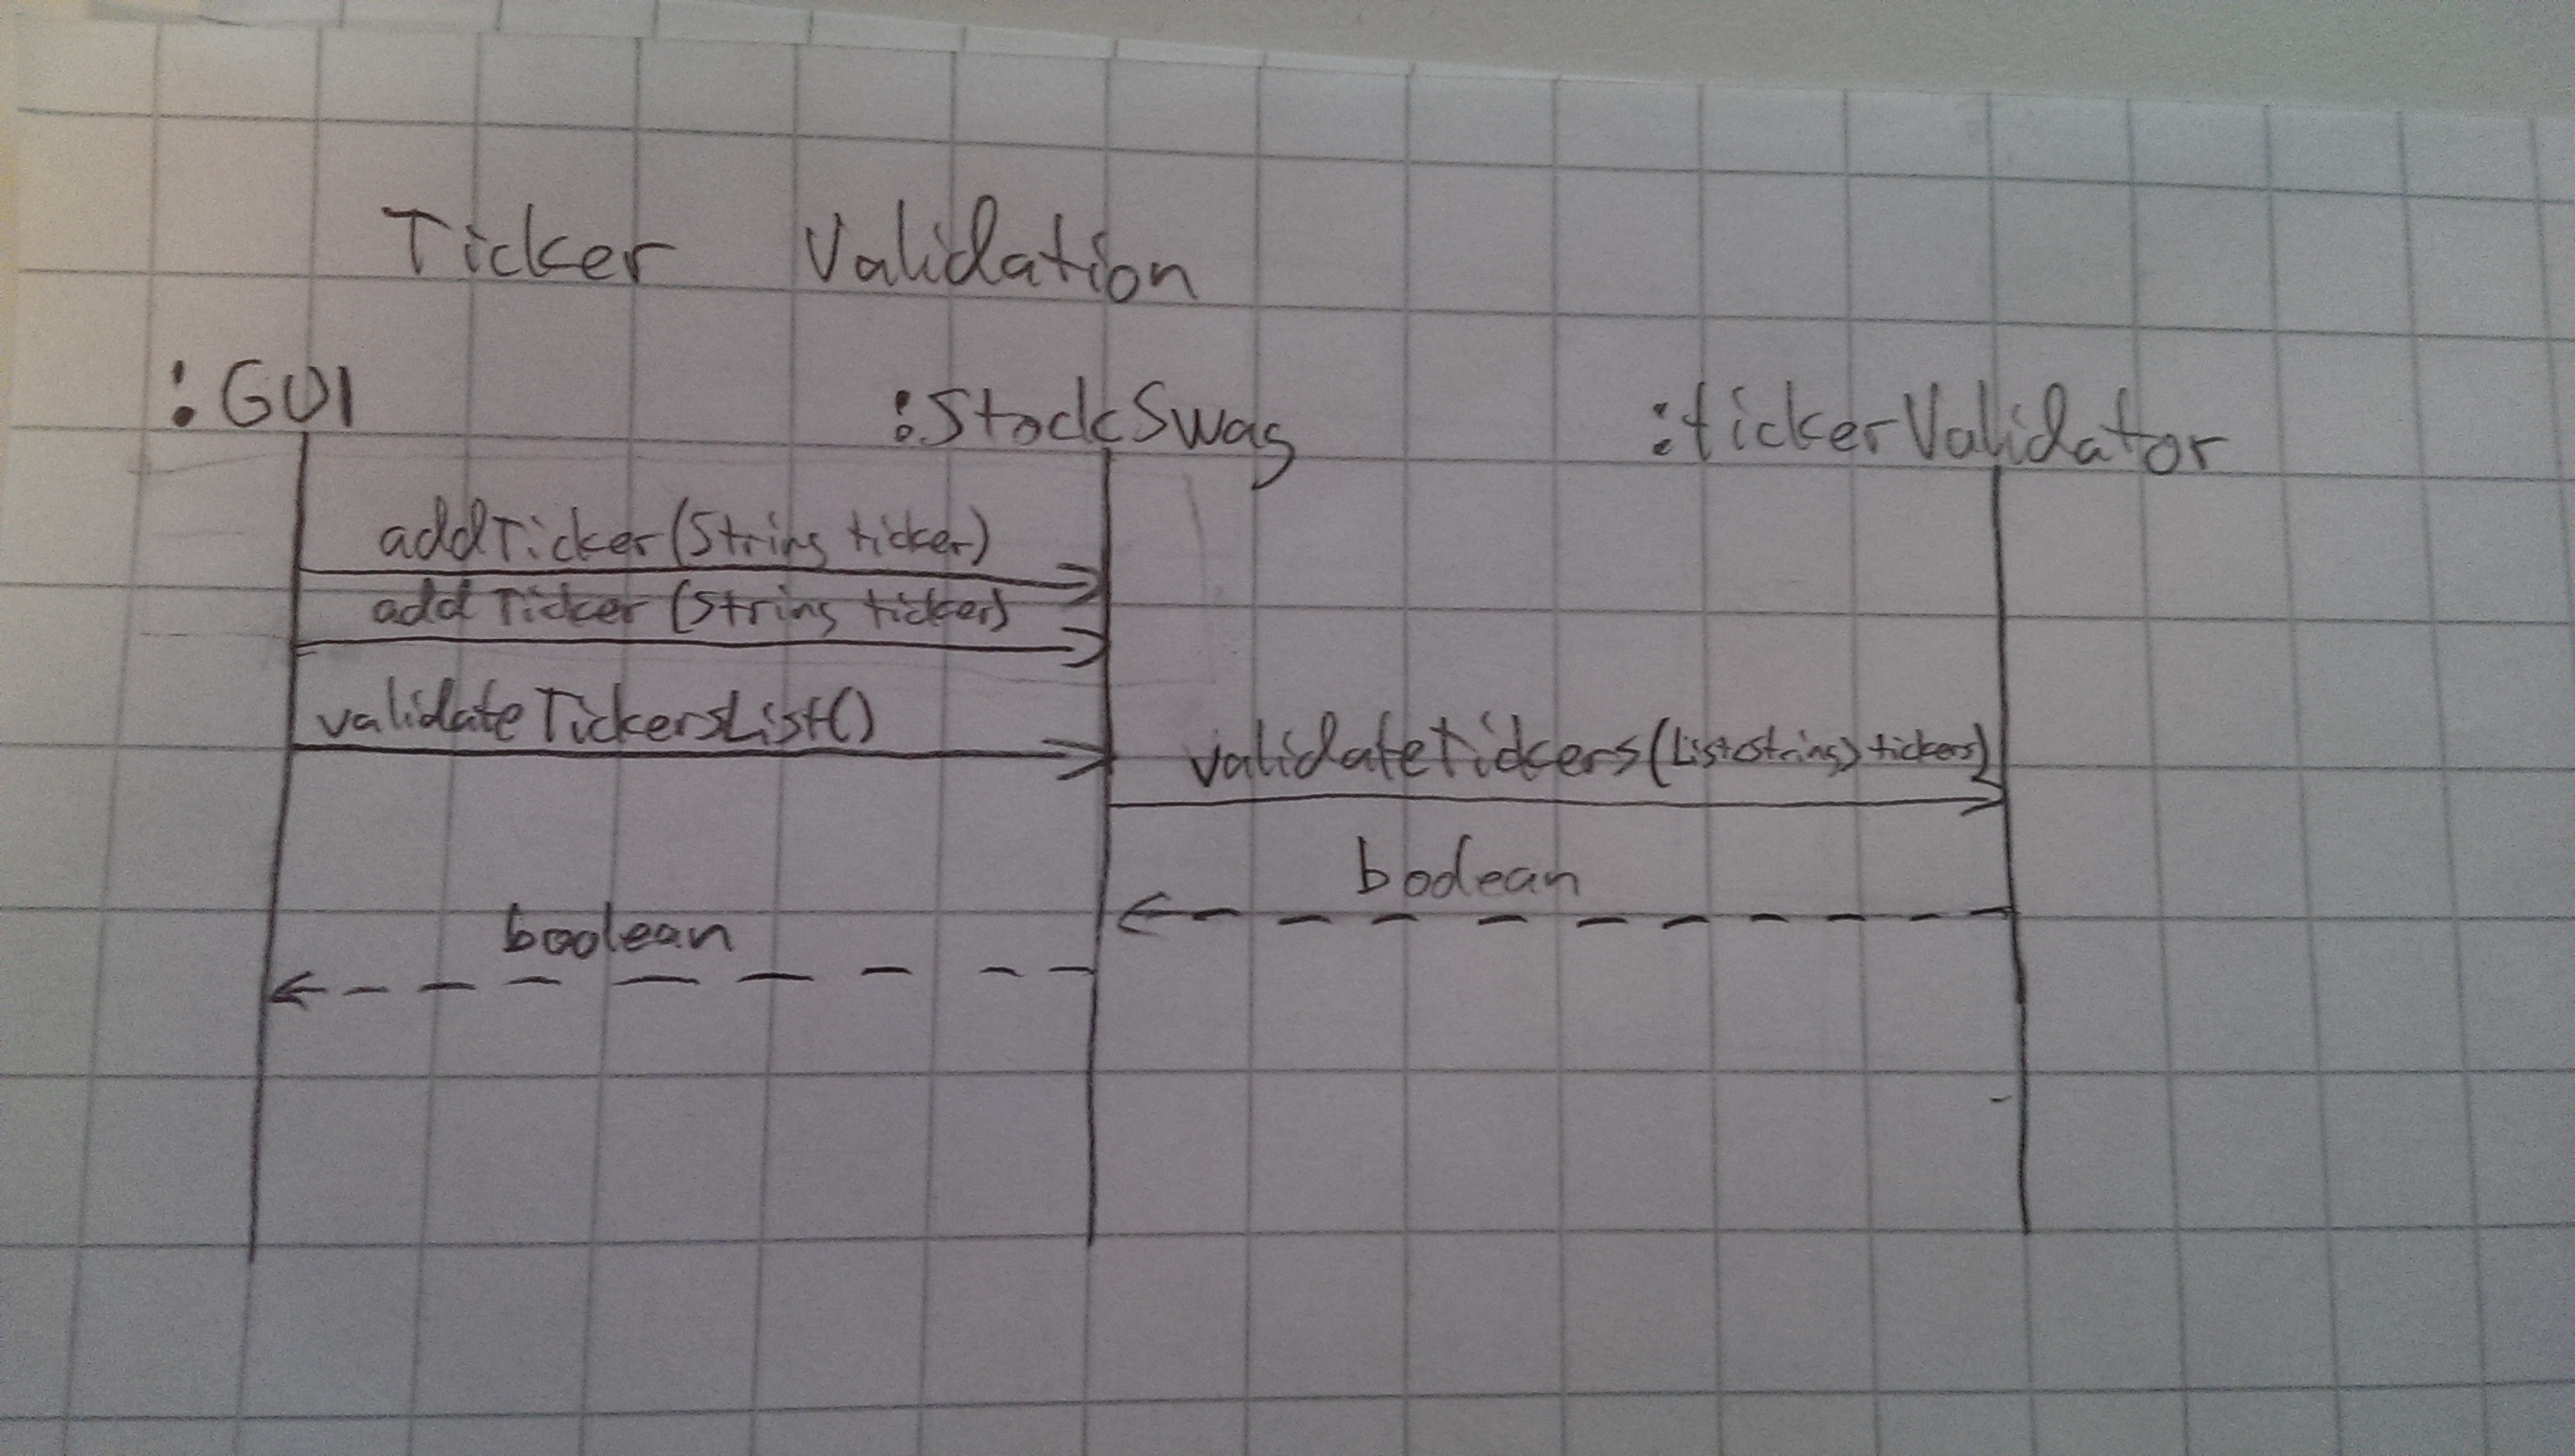 Ticker Validation
:GUI :StockSwag :tickerValidator
addTicker(String ticker)
addTicker(String ticker)
validateTickersList()
validateTickers(List<String> tickers)
boolean
boolean